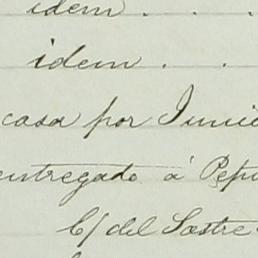 idem . . .
idem . .
casa por Junio
entregado á Pep
C/ del Sastre